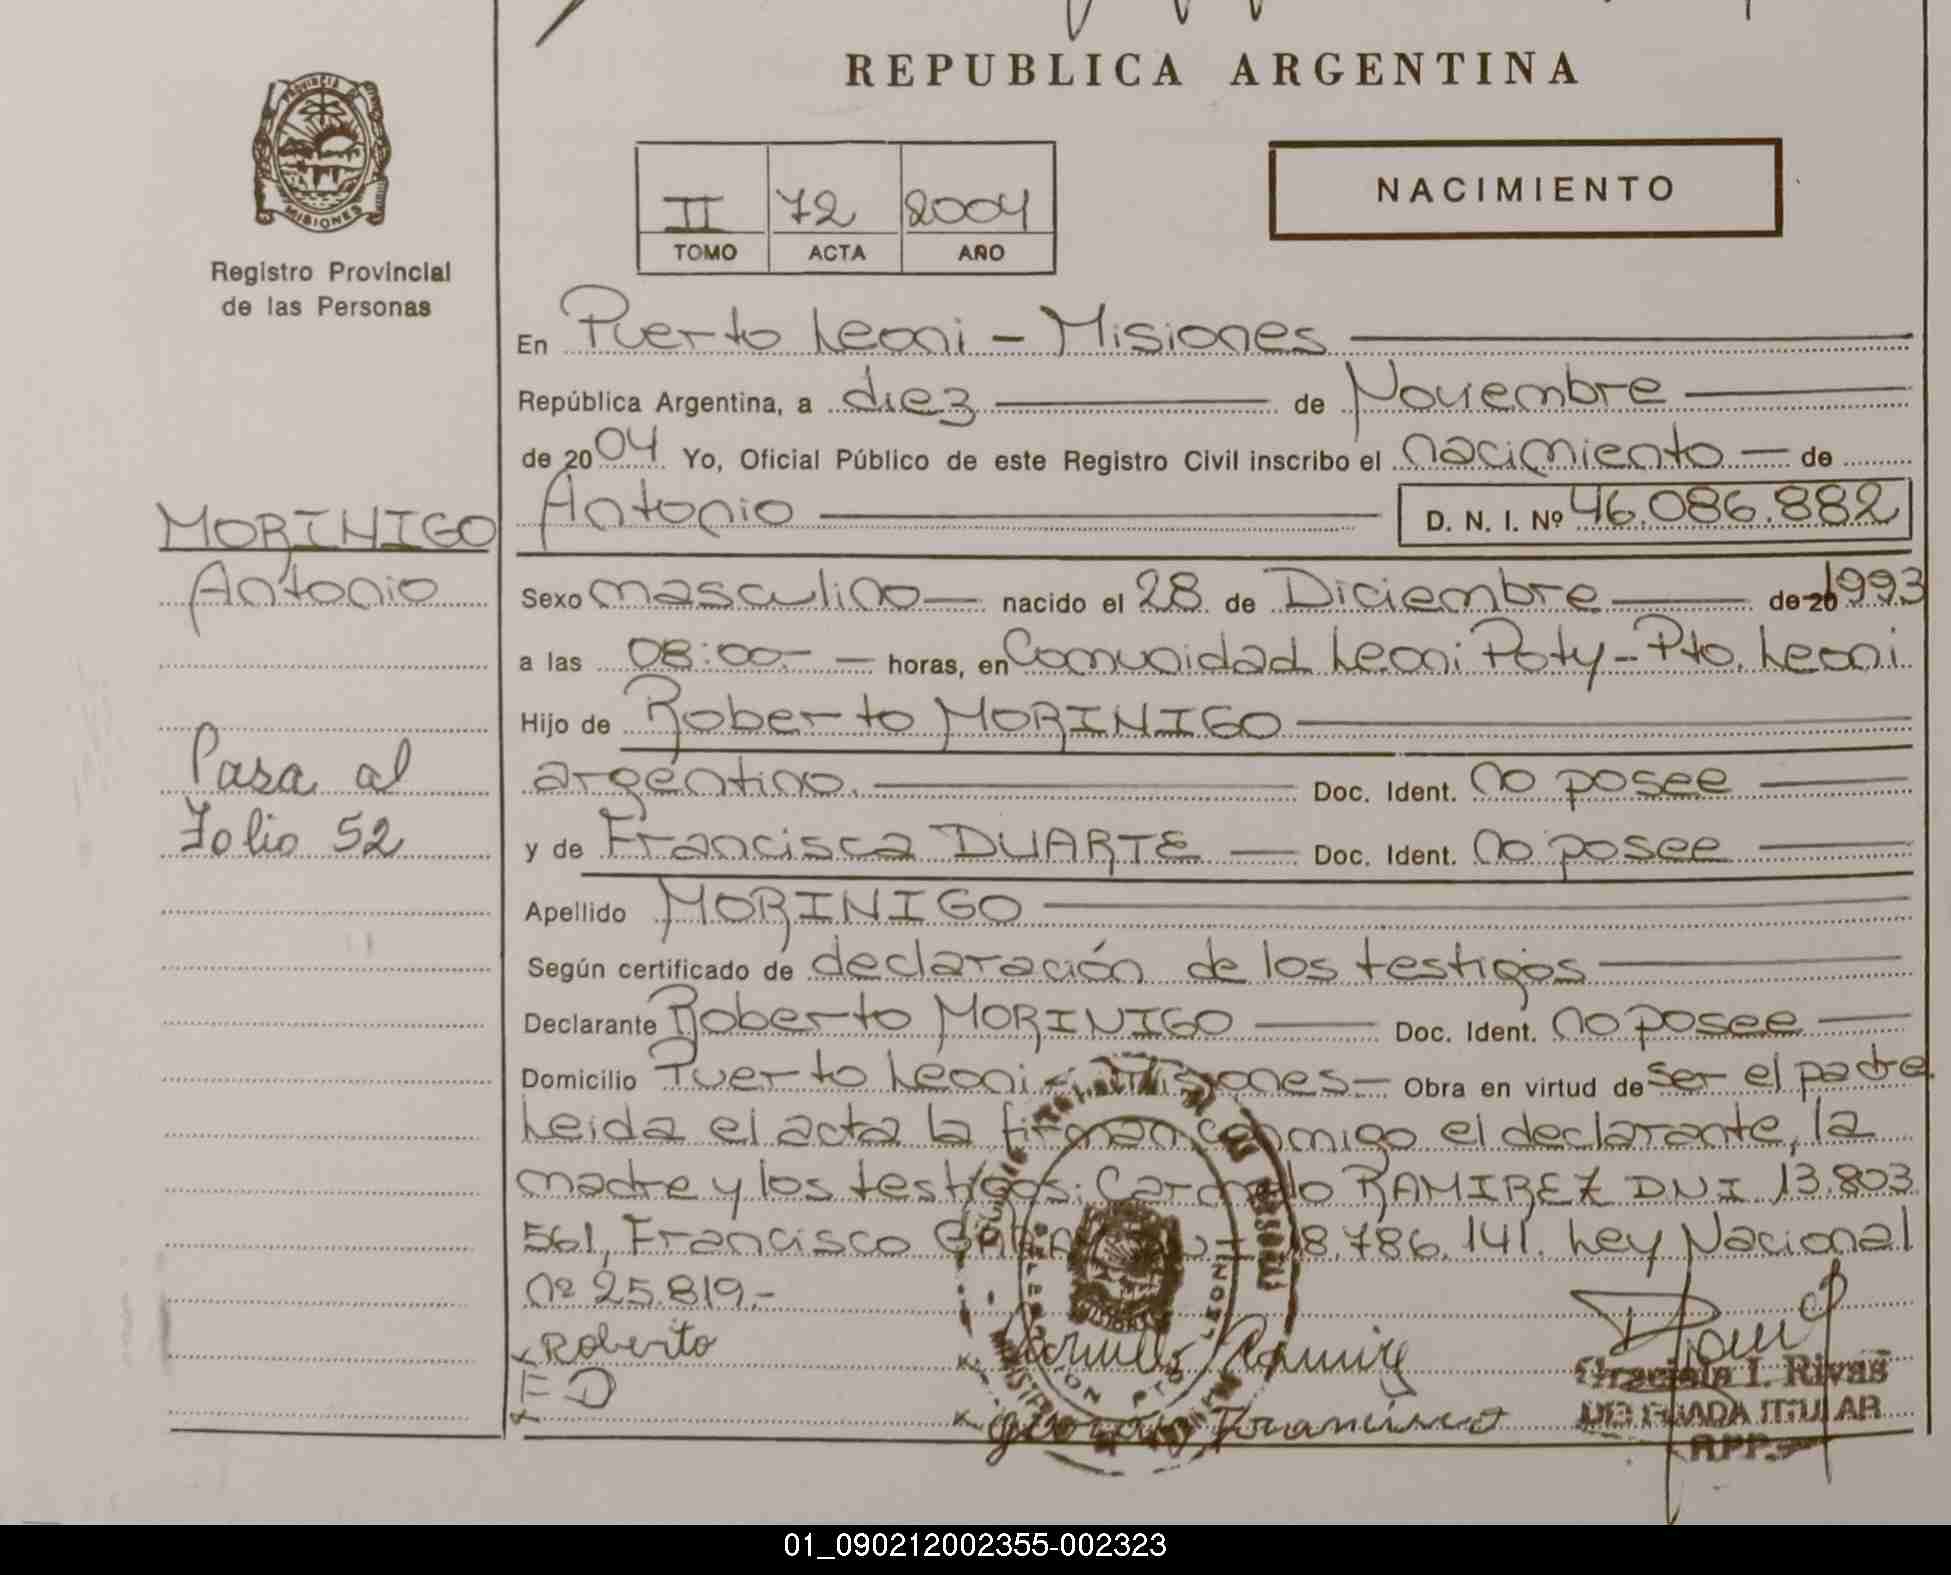 REPUBLICA ARGENTINA
PROVINCIA DE
MISIONES
Registro Provincial
de las Personas
NACIMIENTO
II 72 2004
TOMO ACTA AÑO
En Puerto Leoni - Misiones
República Argentina, a diez de Noviembre
de 2004 Yo, Oficial Público de este Registro Civil inscribo el nacimiento de
Antonio D. N. I. Nº 46.086.882
MORINIGO
Antonio
Pasa al
Folio 52
Sexo masculino nacido el 28 de Diciembre de 20 1993
a las 08:00.- horas, en Comunidad Leoni Poty - Pto. Leoni
Hijo de Roberto MORINIGO
argentino. Doc. Ident. no posee
y de Francisca DUARTE Doc. Ident. no posee
Apellido MORINIGO
Según certificado de declaración de los testigos
Declarante Roberto MORINIGO Doc. Ident. no posee
Domicilio Puerto Leoni - Misiones - Obra en virtud de ser el padre
Leida el acta la firman conmigo el declarante, la
madre y los testigos: Carmelo RAMIREZ DNI 13.803
561, Francisco 18.786.141. Ley Nacional
nº 25.819.-
Roberto
FD
Ramirez
Francisco
Graciela I. Rivas
DELEGADA TITULAR
R.P.P.
01_090212002355-002323